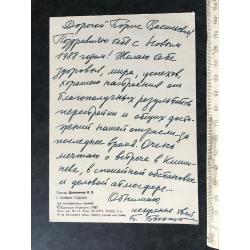 Дорогой Борис Васильевич!
Поздравляю тебя с Новым
1988 годом! Желаю тебе
здоровья, мира, успехов,
хорошего настроения от
благополучных результатов
перестройки и общих дости-
жений нашей отрасли за
последнее время. Очень
мечтаю о встрече в Киши-
неве, в спокойной обстановке
и деловой атмосфере...
Обнимаю,
искренне твой
С НОВЫМ ГОДОМ!
1987